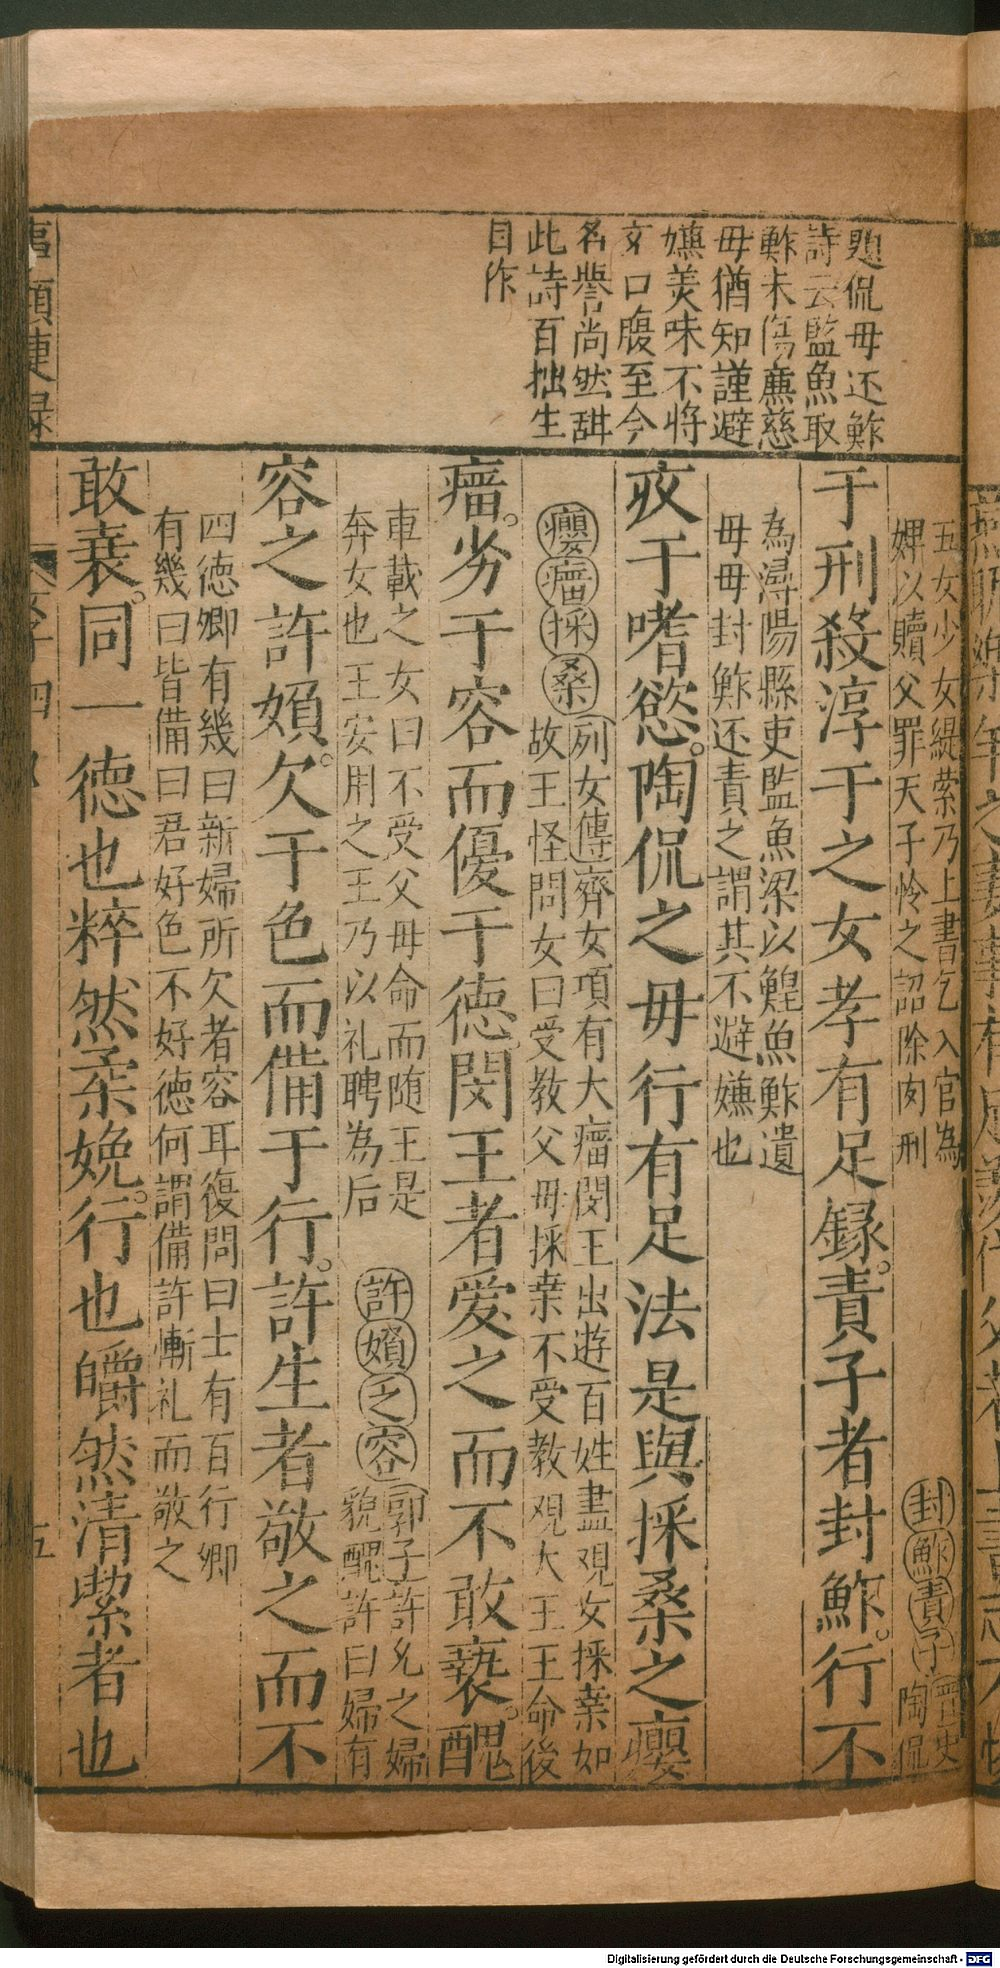 題侃毋还鮓
詩云監魚取
鮓未傷廉慈
毋猶知謹避
嫌羙味不將
充口腹至今
名譽尚然甜
此詩百拙生
目作
五女少女緹縈乃上書乞入官為
婢以贖父罪天子怜之詔除肉刑
封鮓責子
晋史
陶侃
于刑殺淳于之女孝有足録責子者封鮓行不
為潯陽縣吏監魚梁以鰉魚鮓遺
毋毋封鮓还責之謂其不避嫌也
㳄于嗜慾陶侃之毋行有足法是與採桑之癭
癭瘤採桑
列女傳齊女項有大瘤閔王出遊百姓盡覌女採桒如
故王怪問女曰受教父毋採桒不受教覌大王王命後
瘤劣于容而優于德閔王者爱之而不敢䙝醜
車載之女曰不受父毋命而随王是
奔女也王安用之王乃以礼聘為后
許嬪乏容
郭子許允之婦
貌醜許曰婦有
容之許嬪欠于色而備于行許生者敬之而不
四徳卿有幾曰新婦所欠者容耳復問曰士有百行卿
有幾曰皆備曰君好色不好徳何謂備許慚礼而敬之
敢衰同一德也粹然柔婉行也皭然清潔者也
事類捷録
五
Digitalisierung gefördert durch die Deutsche Forschungsgemeinschaft - DFG